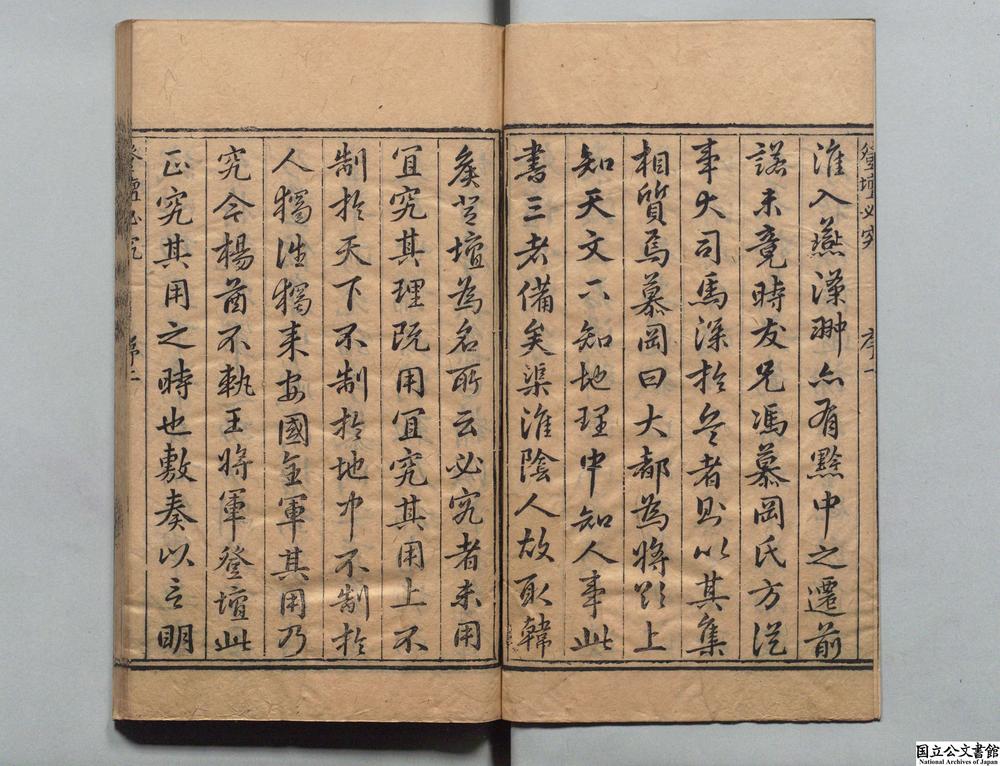 登壇必究 序一
淮入燕漢翀亦有黔中之遷前
諾未竟時友兄馮慕岡氏方從
事大司馬深於兵者則以其集
相質焉慕岡曰大都為將欲上
知天文下知地理中知人事此
書三者備矣渠淮陰人故取韓
矦登壇為名所云必究者未用
宜究其理既用宜究其用上不
制於天下不制於地中不制於
人獨往獨来安國全軍其用乃
究今楊酋不執王將軍登壇此
正究其用之時也敷奏以言明
登壇必究 序二
国立公文書館
National Archives of Japan